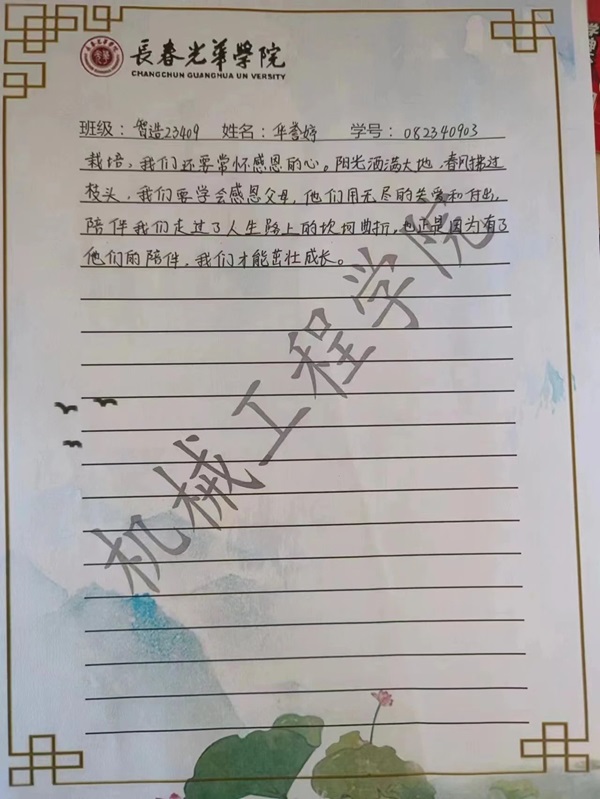 長春光華學院
CHANGCHUN GUANGHUA UN VERSITY
班级：智造23409 姓名：华誉婷 学号：082340903
栽培，我们还要常怀感恩的心。阳光洒满大地，春风拂过
枝头，我们要学会感恩父母，他们用无尽的关爱和付出，
陪伴我们走过了人生路上的坎坷曲折，也正是因为有了
他们的陪伴，我们才能茁壮成长。
机械工程学院